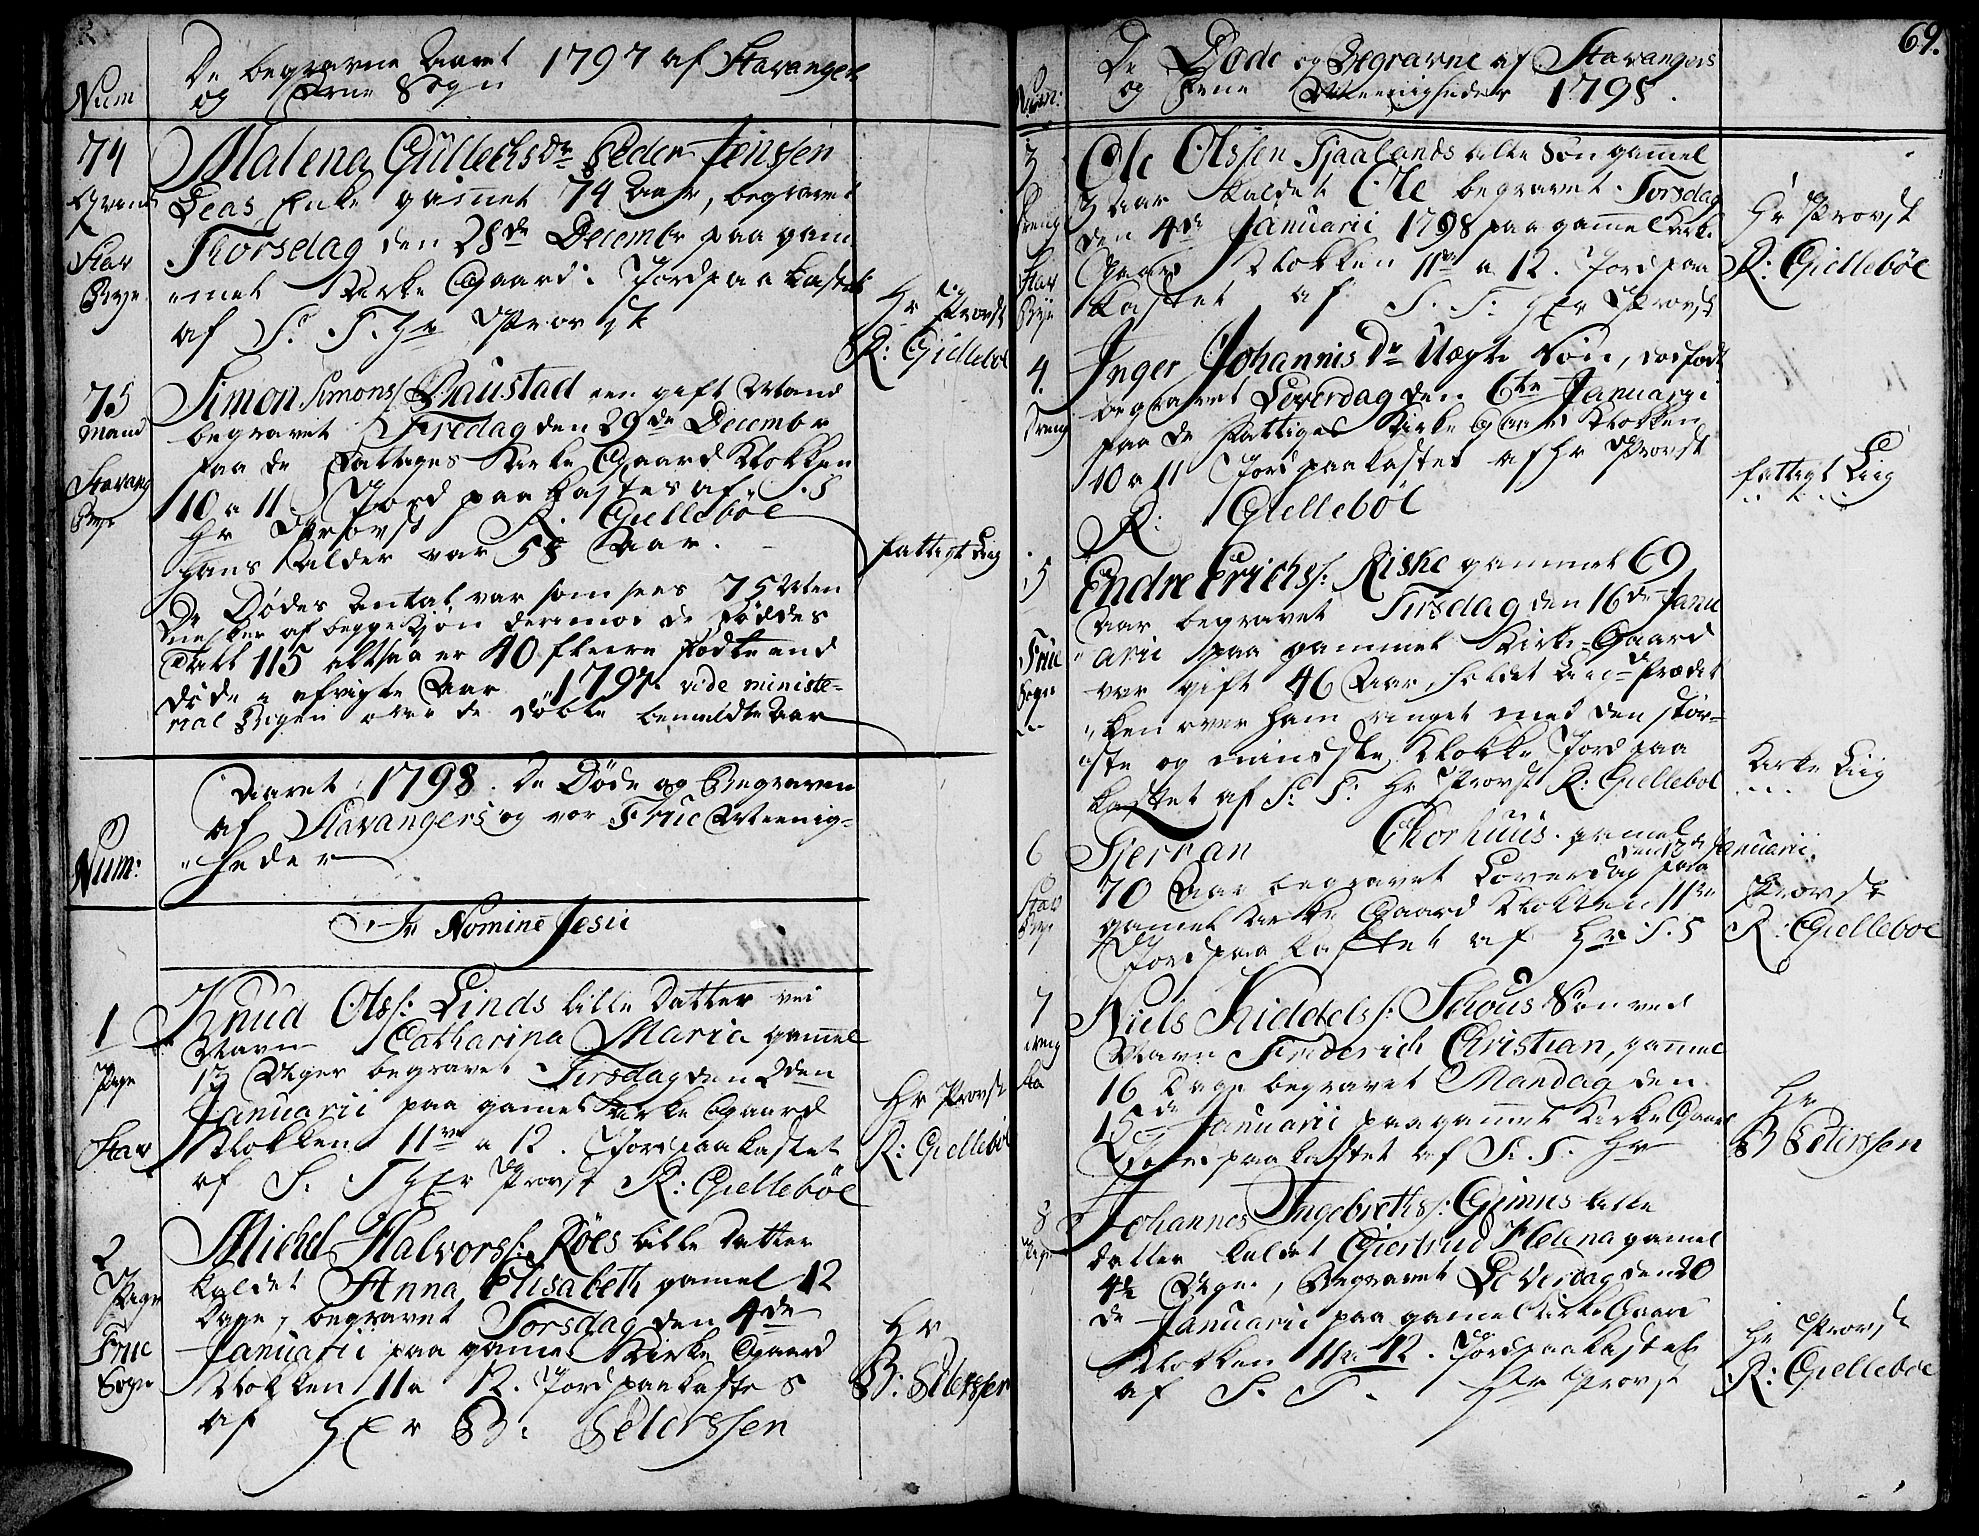 De begravne Aaret 1797 af Stavanger
og Frue Sogn
Num
74
Stav
Bye
Malena Gullechsdr Peder Jenssen
Leas Enke gammel 74 Aar, begravet
Thorsdag den 28de Decembr paa gam
mel Kirke Gaard. Jordpaakastet
af S. T. Hr Provst
Hr Provst
R: Gielleböl
75
Mand
Stavang
Bye
Simon Simons: Baustad een gift Mand
begravet Fredag den 29de Decembr
paa de Fattiges Kirke Gaard Klokken
10 a 11 Jord paa kastes af S. T
Hr Provst R. Gielleböl
hans alder var 58 Aar.
fattigt Liig
De Dödes Antal var som sees 75 Men
nesker af begge Kiön derimod de föddes
Tall 115 altsaa er 40 fleere födte end
döde i afvigte Aar 1797 vide ministe-
rial Bogen over de döbte bemeldte Aar
Num:
Aaret 1798. De Döde og Begraven
af Stavangers og vor Frue Meenig-
heder
In Nomine Jesu
1
Pige
Stav
Knud Ols: Linds lille datter ved
Navn Catharina Maria gamel
13 Uger begravet Tirsdag den 2den
Januarii paa gamel Kirke Gaard
Klokken 11ve a 12. Jordpaakastet
af S. T Hr Provst R: Gielleböl
Hr Provst
R: Gielleböl
2
Pige
Frue
Sogn
Michel Halvors: Röes lille datter
kaldet Anna Elisabeth gamel 12
dage, begravet Torsdag den 4de
Januarii paa gamel Kirke Gaard
Klokken 11 a 12. Jord paakastes
af Hr B: Peterssen
Hr
B: Peterssen
69.
De Döde og Begravne af Stavangers
og Frue Meenigheder 1798.
Num:
3
Dreng
Stav
Bye
Ole Olssen Tjaalands lille Sön gamel
3 aar kaldet Ole begravet Torsdag
den 4de Januarii 1798 paa gamel Kirke
Gaard Klokken 11ve a 12. Jord paa
kastet af S. T. Hr Provst
Hr Provst
R: Gielleböl
4.
Dreng
Inger Johannisdr Uægte Sön, dödfödt
begravet Löverdag den 6te Januarii
paa de Fattiges Kirke Gaard Klokken
10 a 11 Jordpaakastet af Hr Provst
R: Gielleböl
fattigt Liig
5
Frue
Sogn
Endre Erichs: Riske gammel 69
Aar begravet Tirsdag den 16de Janu
arii paa gammel Kirke-Gaard
var gift 46 Aar, holdet Liig Prædi
ken over ham ringet med den stör-
ste og mindste Klokke Jord paa
kastet af S. T. Hr Provst R: Gielleböl
Kirke Liig
6
Stav
Bye
Sierran Chorhuus. gamel
70 Aar begravet Löverdag den 13de Januarii paa
gamel Kirke Gaard Klokken 11ve
Jordpaakastet af Hr S. T
Provst
R: Gielleböl
7
dreng
Niels Kiddels: Schous Sön ved
Navn Frederich Christian, gammel
16 dage begravet Mandag den
15de Januarii paa gammel Kirke Gaard
Jorden paakastet af S. T. Hr
Hr
B Peterssen
8
Pige
Johannes Ingebreths: Gimres lille
datter kaldet Giertrud Helena gamel
4½ Uger, Begravet Löverdag den 20
de Januarii paa gamel Kirke Gaard
Klokken 11 a 12. Jordpaakastet
af S. T. Hr Provst
Hr Provst
R: Gielleböl